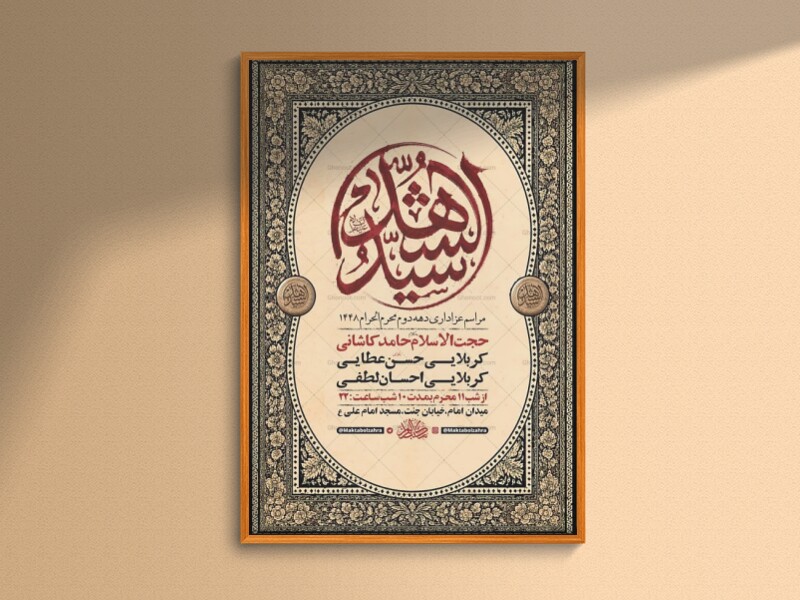 سید الشهدا
مراسم عزاداری دهه دوم محرم الحرام ۱۴۴۸
حجت الاسلام حامد کاشانی
کربلایی حسن عطایی
کربلایی احسان لطفی
از شب ۱۱ محرم بمدت ۱۰ شب ساعت: ۲۲
میدان امام، خیابان جنت، مسجد امام علی ع
@Maktabelzahra @Maktabelzahra